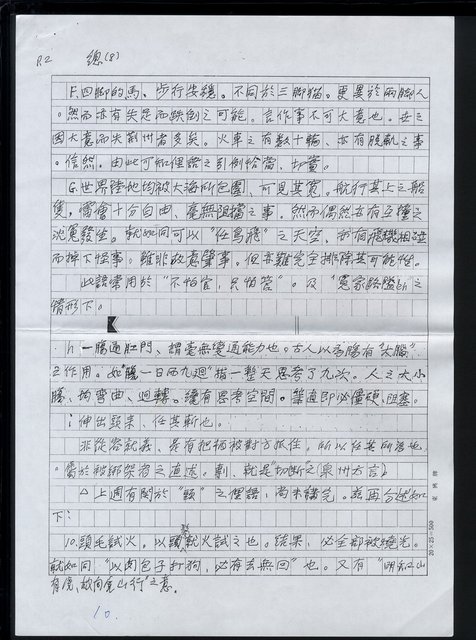 P.2 總(8)
F.四腳的馬、步行安穩。不同於三腳貓。更異於兩腳人
。然而亦有失足而跌倒之可能。言作事不可大意也。世之
因大意而失荊州者多矣。火車之有數十輪、亦有脫軌之事
。信然。由此可知俚語之引例恰當、切實。
G.世界陸地均被大海所包圍、可見其寬。航行其上之船
隻,當會十分自由、毫無阻擋之事。然而偶然亦有互撞之
沈冤發生。就如同可以“任鳥飛”之天空、亦有飛機相碰
而掉下怪事。雖非故意肇事。但亦難完全排除其可能性。
此語常用於“不怕官,只怕管”。及“冤家路隘”之
情形下。
h 一腸通肛門、謂毫無變通能力也。古人以為腸有“大腦”
之作用。如“腸一日而九迴”指一整天思考了九次。人之大小
腸、均彎曲、迴轉。纔有思考空間。筆直即必僵硬、阻塞。
i 伸出頭來、任其斬也。
非從容就義、是有把柄被對方抓住,所以任其所為也
。屬於被綁架者之直述。剸、就是切斷之(泉州方言)
△上週有關於“頭”之俚語,尚未講完。茲再合述如
下:
10.頭毛試火。以頭髮就火試之也。結果、必全部被燒光。
就如同“以肉包子打狗,必有去無回”也。又有“明知山
有虎、故向虎山行”之意。
20×25=500
10.